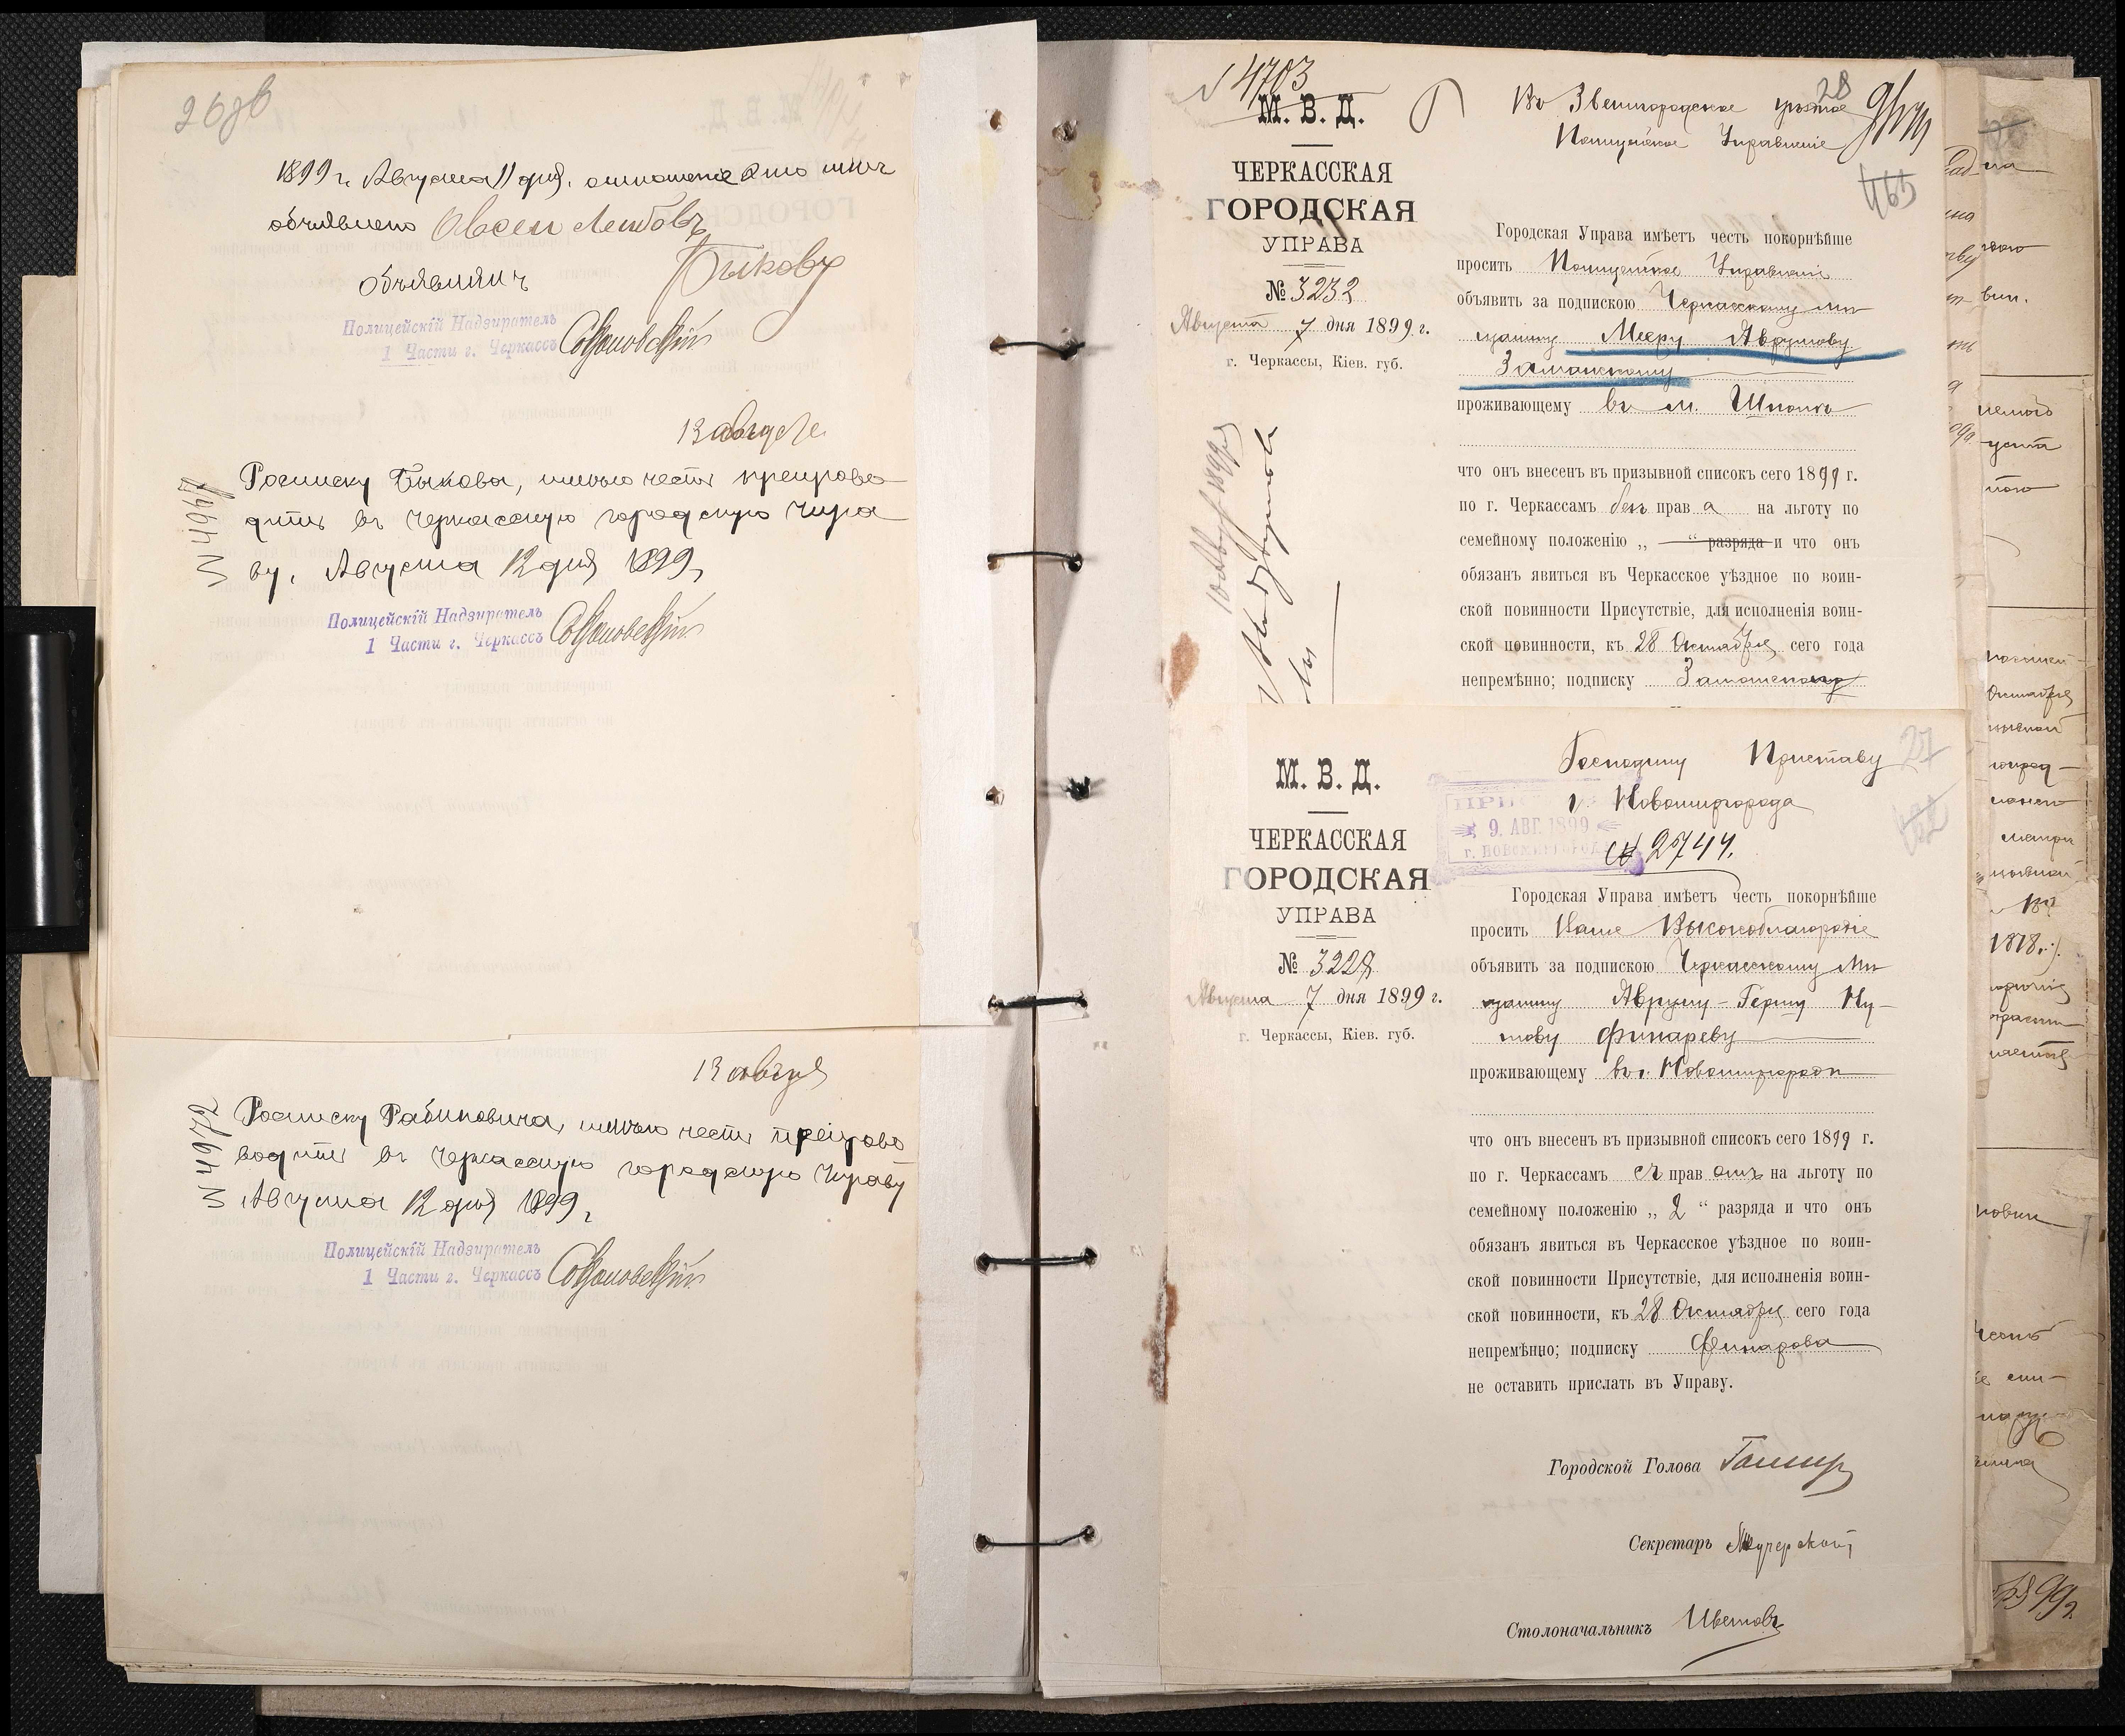 26об
1899 г. Августа 11 дня, отношение это мною
объявлено Овсею Лейбовъ
Быкову
Объявилъ
Полицейскій Надзиратель
1 Части г. Черкассъ
13 августа
Росписку Быкова, имѣю честь препрово-
дить въ Черкасскую городскую Упра
ву, Августа 12 дня 1899 г.
Полицейскій Надзиратель
1 Части г. Черкассъ
13 августа
№ 4972
Росписку Рабиновича, имѣю честь препрово
водить въ Черкасскую городскую Управу
Августа 12 дня 1899 г.
Полицейскій Надзиратель
1 Части г. Черкассъ
№ 4703
М. В. Д.
ЧЕРКАССКАЯ
ГОРОДСКАЯ
УПРАВА
№ 3232
Августа 7 дня 1899 г.
г. Черкассы, Кіев. губ.
28
Въ Звенигородское уѣздное
Полицейское Управленіе
465
Городская Управа имѣетъ честь покорнѣйше
просить Полицейское Управленіе
объявить за подпискою Черкасскому мѣ
щанину Мееру Аврумову
Заманскому
проживающему въ м. Шпола
что онъ внесенъ въ призывной списокъ сего 1899 г.
по г. Черкассамъ безъ права на льготу по
семейному положенію „ — “ разряда и что онъ
обязанъ явиться въ Черкасское уѣздное по воин-
ской повинности Присутствіе, для исполненія воин-
ской повинности, къ 28 Октября сего года
непремѣнно; подписку Заманскаго
М. В. Д.
ЧЕРКАССКАЯ
ГОРОДСКАЯ
УПРАВА
№ 3228
Августа 7 дня 1899 г.
г. Черкассы, Кіев. губ.
27
Господину Приставу
г. Новомиргорода
9. АВГ. 1899
г. НОВОМИРГОРОД
№ 2744.
Городская Управа имѣетъ честь покорнѣйше
просить Ваше Высокоблагородіе
объявить за подпискою Черкасскому мѣ
щанину Авруму-Гершу Ну-
химову Финареву
проживающему въ г. Новомиргородѣ
что онъ внесенъ въ призывной списокъ сего 1899 г.
по г. Черкассамъ съ правомъ на льготу по
семейному положенію „ 2 “ разряда и что онъ
обязанъ явиться въ Черкасское уѣздное по воин-
ской повинности Присутствіе, для исполненія воин-
ской повинности, къ 28 Октября сего года
непремѣнно; подписку Финарова
не оставить прислать въ Управу.
Городской Голова
Секретарь
Столоначальникъ Цвѣтовъ